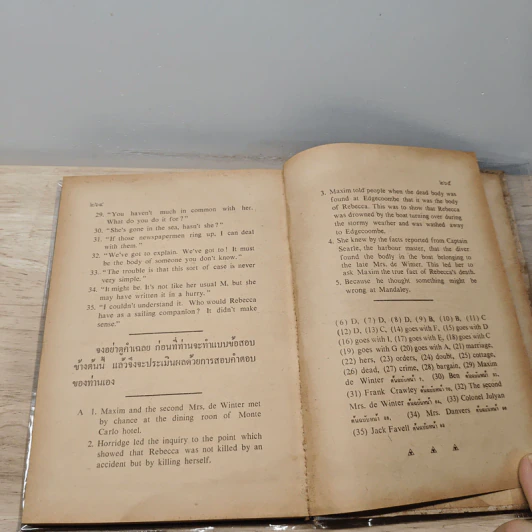 29. "You haven't much in common with her.
What do you do it for?"
30. "She's gone in the sea, hasn't she?"
31. "If those newspapermen ring up, I can deal
with them."
32. "We've got to explain. We've got to! It must
be the body of someone you don't know."
33. "The trouble is that this sort of case is never
very simple."
34. "It might be. It's not like her usual M, but she
may have written it in a hurry."
35. "I couldn't understand it. Who would Rebecca
have as a sailing companion? It didn't make
sense."
จงอย่าดูคำเฉลย ก่อนที่ท่านจะทำแบบข้อสอบ
ข้างต้นนี้ แล้วจึงจะประเมินผลด้วยการสอบคำตอบ
ของท่านเอง
A 1. Maxim and the second Mrs. de Winter met
by chance at the dining room of Monte
Carlo hotel.
2. Horridge led the inquiry to the point which
showed that Rebecca was not killed by an
accident but by killing herself.
3. Maxim told people when the dead body was
found at Edgecoombe that it was the body
of Rebecca. This was to show that Rebecca
was drowned by the boat turning over during
the stormy weather and was washed away
to Edgecoombe.
4. She knew by the facts reported from Captain
Searle, the harbour master, that the diver
found the bodly in the boat belonging to
the late Mrs. de Winter. This led her to
ask Maxim the true fact of Rebecca's death.
5. Because he thought something might be
wrong at Mandaley.
(6) D, (7) D, (8) D, (9) B, (10) B, (11) C
(12) D, (13) C, (14) goes with F, (15) goes with D
(16) goes with I, (17) goes with E, (18) goes with C
(19) goes with G (20) goes with A, (21) marriage,
(22) hers, (23) orders, (24) doubt, (25) cottage,
(26) dead, (27) crime, (28) bargain, (29) Maxim
de Winter ต้นฉบับหน้า (30) Ben ต้นฉบับหน้า
(31) Frank Crawley ต้นฉบับหน้า (32) The second
Mrs. de Winter ต้นฉบับหน้า (33) Colonel Julyan
ต้นฉบับหน้า (34) Mrs. Danvers ต้นฉบับหน้า
(35) Jack Favell ต้นฉบับหน้า